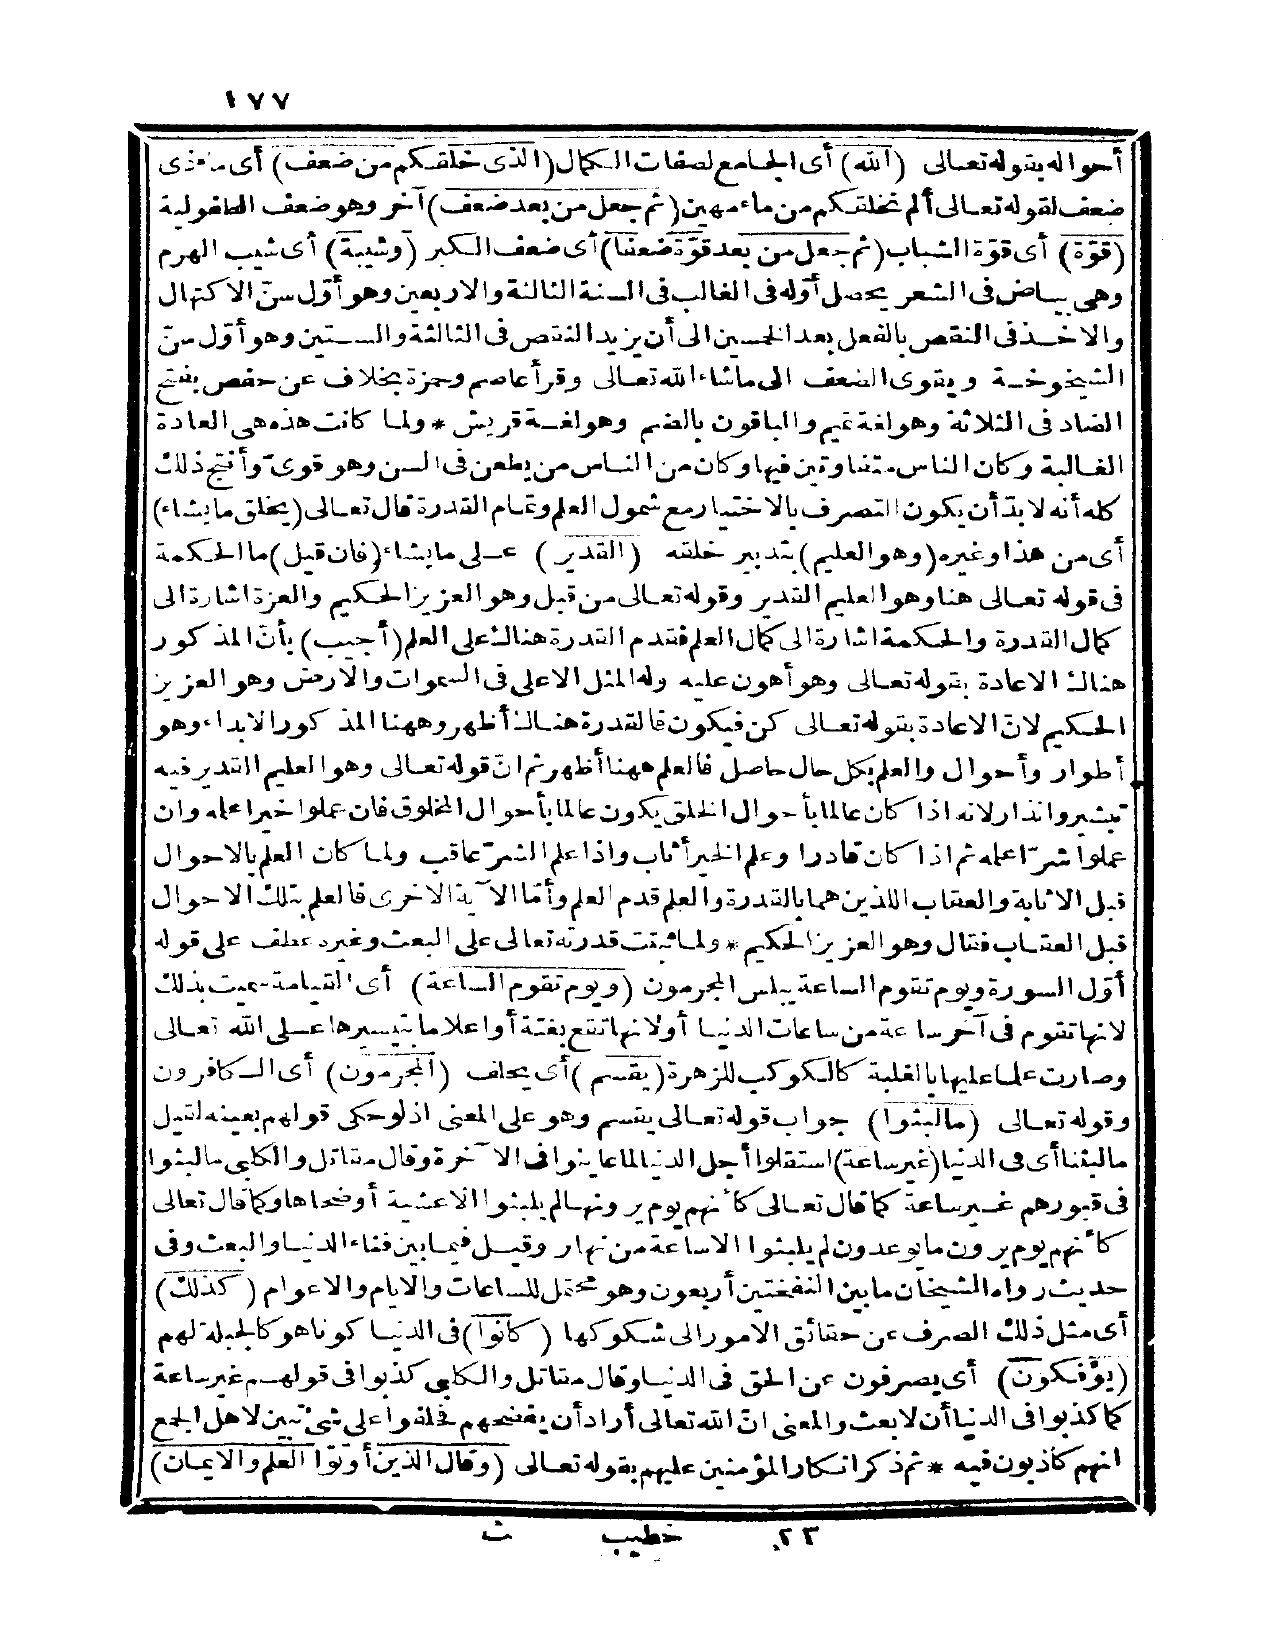 ١٧٧
أحواله بقوله تعالى (الله) أى الجامع لصفات الكمال (الذى خلقكم من ضعف) أى ماء ذى
ضعف لقوله تعالى ألم نخلقكم من ماء مهين (ثم جعل من بعد ضعف) آخر وهو ضعف الطفولية
(قوّة) أى قوّة الشباب (ثم جعل من بعد قوّة ضعفا) أى ضعف الكبر (وشيبة) أى شيب الهرم
وهى بياض فى الشعر يحصل أوّله فى الغالب فى السنة الثالثة والاربعين وهو أوّل سنّ الاكتهال
والاخذ فى النقص بالفعل بعد الخمسين الى أن يزيد النقص فى الثالثة والستين وهو أوّل سنّ
الشيخوخة ويقوى الضعف الى ماشاء الله تعالى وقرأ عاصم وحمزة بخلاف عن حفص بفتح
الضاد فى الثلاثة وهو لغة تميم والباقون بالضم وهو لغة قريش * ولما كانت هذه هى العادة
الغالبة وكان الناس متفاوتين فيها وكان من الناس من يطعن فى السن وهو قوىّ وأنتج ذلك
كله أنه لابدّ أن يكون التصرف بالاختيار مع شمول العلم وتمام القدرة قال تعالى (يخلق مايشاء)
أى من هذا وغيره (وهو العليم) بتدبير خلقه (القدير) على مايشاء (فان قيل) ما الحكمة
فى قوله تعالى هنا وهو العليم القدير وقوله تعالى من قبل وهو العزيز الحكيم والعزة اشارة الى
كمال القدرة والحكمة اشارة الى كمال العلم فقدم القدرة هناك على العلم (أجيب) بأنّ المذكور
هناك الاعادة بقوله تعالى وهو أهون عليه وله المثل الاعلى فى السموات والارض وهو العزيز
الحكيم لانّ الاعادة بقوله تعالى كن فيكون فالقدرة هناك أظهر وههنا المذكور الابداء وهو
أطوار وأحوال والعلم بكل حال حاصل فالعلم ههنا أظهر ثم انّ قوله تعالى وهو العليم القدير فيه
تبشير وانذار لانه اذا كان عالما بأحوال الخلق يكون عالما بأحوال المخلوق فان عملوا خيرا علمه وان
عملوا شرّا علمه ثم اذا كان قادرا وعلم الخير أثاب واذا علم الشرّ عاقب ولما كان العلم بالاحوال
قبل الاثابة والعقاب اللذين هما بالقدرة والعلم قدم العلم وأمّا الآية الاخرى فالعلم بتلك الاحوال
قبل العقاب فقال وهو العزيز الحكيم * ولما ثبتت قدرته تعالى على البعث وغيره عطف على قوله
أوّل السورة ويوم تقوم الساعة يبلس المجرمون (ويوم تقوم الساعة) أى القيامة سميت بذلك
لانها تقوم فى آخر ساعة من ساعات الدنيا أو لانها تقع بغتة أو اعلاما بتيسيرها على الله تعالى
وصارت علما عليها بالغلبة كالكوكب للزهرة (يقسم) أى يحلف (المجرمون) أى الكافرون
وقوله تعالى (مالبثوا) جواب قوله تعالى يقسم وهو على المعنى اذ لو حكى قولهم بعينه لقيل
مالبثنا أى فى الدنيا (غير ساعة) استقلوا أجل الدنيا لما عاينوا فى الآخرة وقال مقاتل والكلبى مالبثوا
فى قبورهم غير ساعة كما قال تعالى كأنهم يوم يرونها لم يلبثوا الاعشية أوضحاها وكما قال تعالى
كأنهم يوم يرون مايوعدون لم يلبثوا الاساعة من نهار وقيل فيما بين فناء الدنيا والبعث وفى
حديث رواه الشيخان مابين النفختين أربعون وهو محتمل للساعات والايام والاعوام (كذلك)
أى مثل ذلك الصرف عن حقائق الامور الى شكوكها (كانوا) فى الدنيا كونا هو كالجبلة لهم
(يؤفكون) أى يصرفون عن الحق فى الدنيا وقال مقاتل والكلبى كذبوا فى قولهم غير ساعة
كما كذبوا فى الدنيا أن لابعث والمعنى انّ الله تعالى أراد أن يفضحهم فحلفوا على شئ تبين لاهل الجمع
انهم كاذبون فيه * ثم ذكر انكار المؤمنين عليهم بقوله تعالى (وقال الذين أوتوا العلم والايمان)
٢٣ خطيب ث